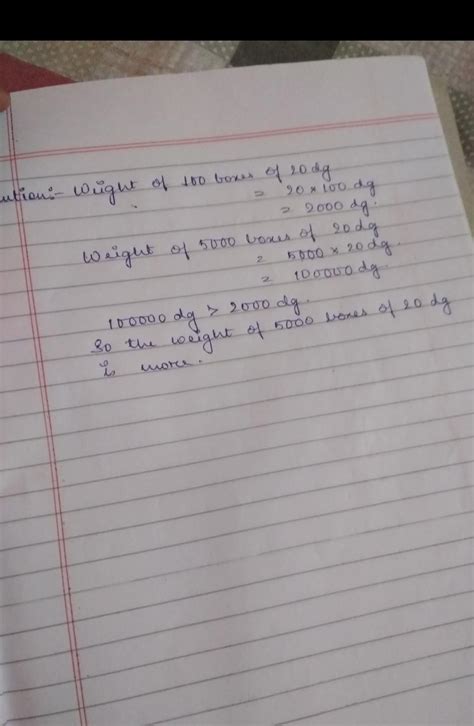 ution:- Weight of 100 boxes of 20 dg
= 20 × 100 dg
= 2000 dg.
Weight of 5000 boxes of 20 dg
= 5000 × 20 dg.
= 100000 dg.
100000 dg > 2000 dg.
So the weight of 5000 boxes of 20 dg
is more.